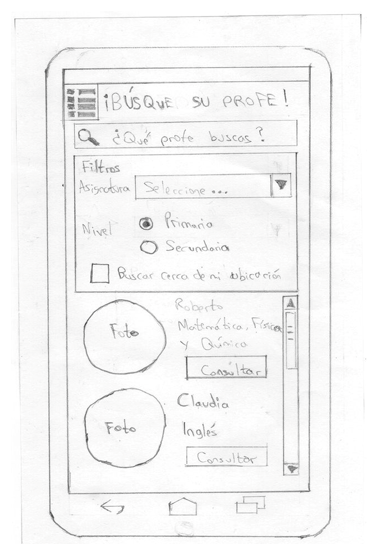 ¡BÚSQUE SU PROFE!
¿Qué profe buscas?
Filtros
Asignatura Seleccione ...
Nivel Primaria
Secundaria
Buscar cerca de mi ubicación
Foto
Roberto
Matemática, Física
y Química
Consultar
Foto
Claudia
Inglés
Consultar